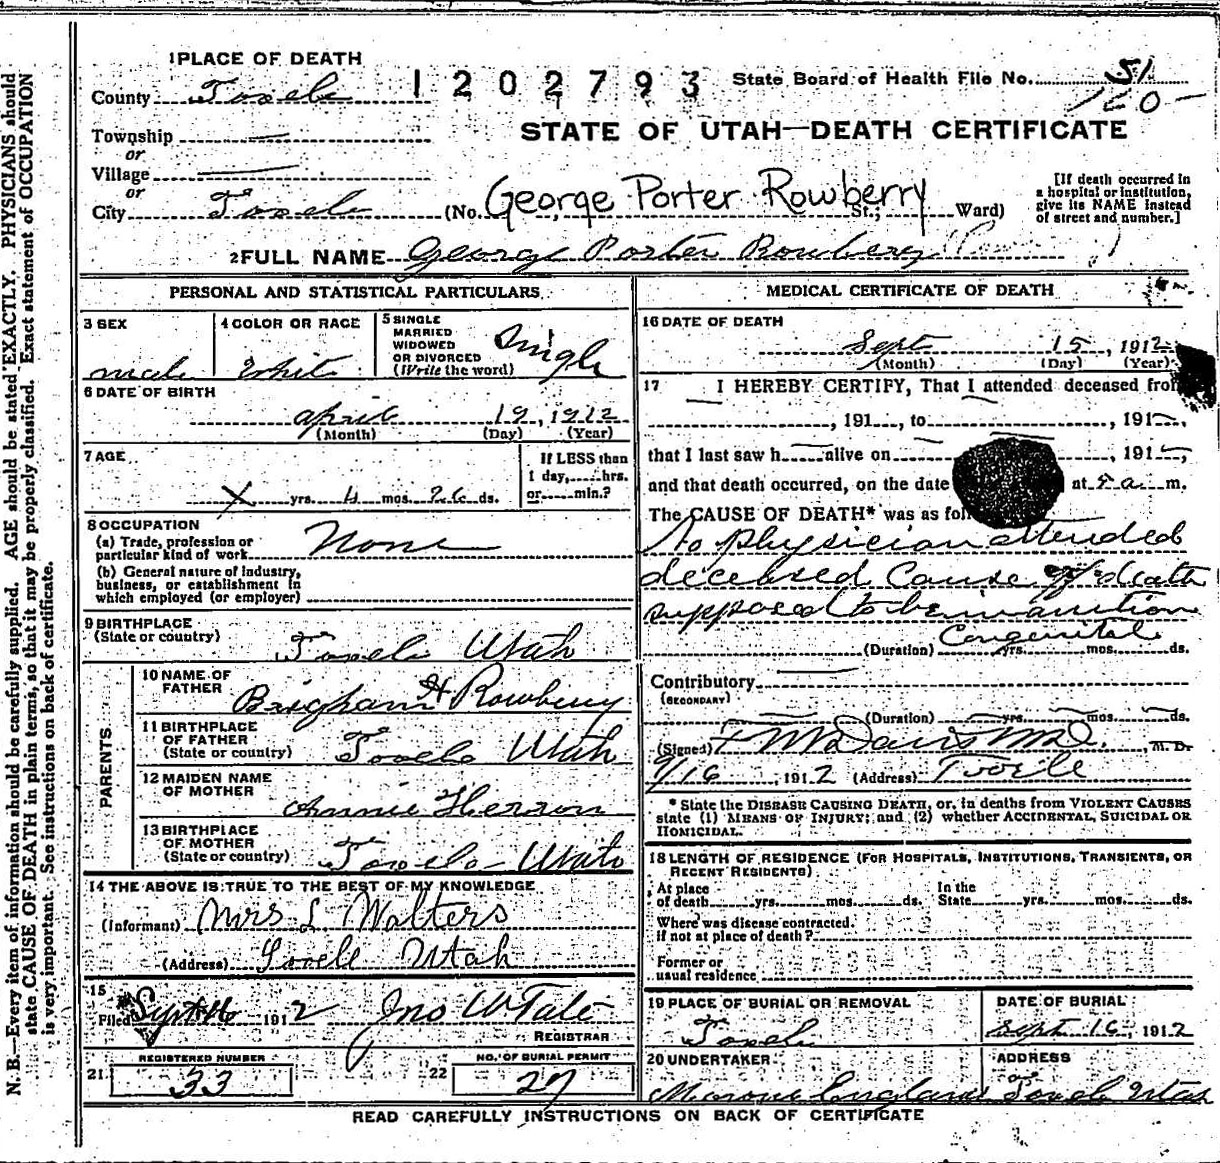 1 PLACE OF DEATH
1202793
State Board of Health File No. 51
160-
County Tooele
Township —
or
Village —
or
City Tooele (No. St.; Ward)
George Porter Rowberry
STATE OF UTAH—DEATH CERTIFICATE
[If death occurred in
a hospital or institution,
give its NAME instead
of street and number.]
2 FULL NAME George Porter Rowbery
PERSONAL AND STATISTICAL PARTICULARS
3 SEX
male
4 COLOR OR RACE
White
5 SINGLE
MARRIED
WIDOWED
OR DIVORCED
(Write the word)
Single
6 DATE OF BIRTH
April 19, 1912
(Month) (Day) (Year)
7 AGE
X yrs. 4 mos. 26 ds.
If LESS than
1 day, hrs.
or min.?
8 OCCUPATION
(a) Trade, profession or
particular kind of work None
(b) General nature of industry,
business, or establishment in
which employed (or employer)
9 BIRTHPLACE
(State or country) Tooele Utah
PARENTS
10 NAME OF
FATHER Brigham H Rowberry
11 BIRTHPLACE
OF FATHER
(State or country) Tooele Utah
12 MAIDEN NAME
OF MOTHER Annie Herron
13 BIRTHPLACE
OF MOTHER
(State or country) Tooele Utah
14 THE ABOVE IS TRUE TO THE BEST OF MY KNOWLEDGE
(Informant) Mrs L Walters
(Address) Tooele Utah
15
Filed Sept 16 1912 Jno W Tate
REGISTRAR
21 REGISTERED NUMBER
33
22 NO. OF BURIAL PERMIT
27
MEDICAL CERTIFICATE OF DEATH
16 DATE OF DEATH
Sept 15, 1912
(Month) (Day) (Year)
17 I HEREBY CERTIFY, That I attended deceased from
, 191 , to , 191
that I last saw h alive on , 191 ,
and that death occurred, on the date at a m.
The CAUSE OF DEATH* was as fol
No physician attended
deceased Cause of death
supposed to be inanition
Congenital
(Duration) yrs. mos. ds.
Contributory
(SECONDARY)
(Duration) yrs. mos. ds.
(Signed) M Davis M.D., M. D.
9/16, 1912 (Address) Tooele
* State the DISEASE CAUSING DEATH, or, in deaths from VIOLENT CAUSES
state (1) MEANS OF INJURY; and (2) whether ACCIDENTAL, SUICIDAL OR
HOMICIDAL.
18 LENGTH OF RESIDENCE (FOR HOSPITALS, INSTITUTIONS, TRANSIENTS, OR
RECENT RESIDENTS)
At place
of death yrs. mos. ds.
In the
State yrs. mos. ds.
Where was disease contracted.
If not at place of death?
Former or
usual residence
19 PLACE OF BURIAL OR REMOVAL
Tooele
DATE OF BURIAL
Sept 16, 1912
20 UNDERTAKER
ADDRESS
England Tooele Utah
READ CAREFULLY INSTRUCTIONS ON BACK OF CERTIFICATE
N. B.—Every item of information should be carefully supplied. AGE should be stated EXACTLY. PHYSICIANS should
state CAUSE OF DEATH in plain terms, so that it may be properly classified. Exact statement of OCCUPATION
is very important. See instructions on back of certificate.